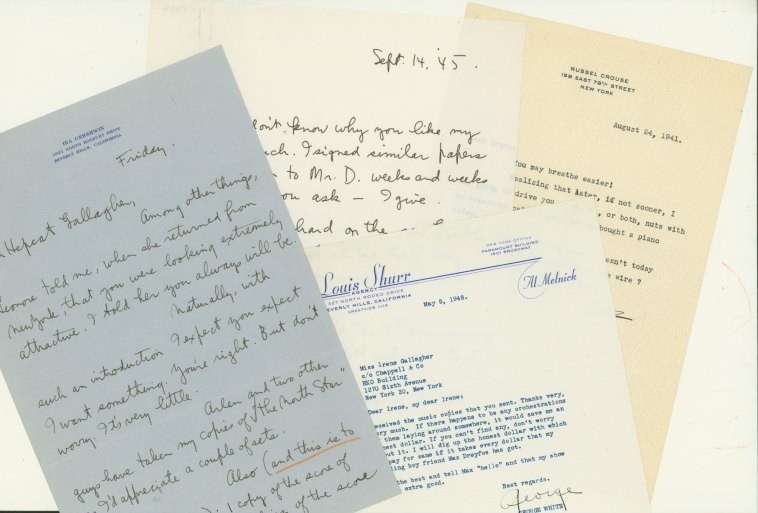 IRA GERSHWIN
1021 NORTH ROXBURY DRIVE
BEVERLY HILLS, CALIFORNIA
Friday.
Hepcat Gallagher,
Among other things,
Leonore told me, when she returned from
New York, that you were looking extremely
attractive. I told her you always will be.
Naturally, with
such an introduction I expect you expect
I want something. You're right. But don't
worry. It's very little.
Arlen and two other
guys have taken my copies of "The North Star"
I'd appreciate a couple of sets
Also (and this is to
1 copy of the score of
of the score
Sept. 14, '45.
don't know why you like my
much. I signed similar papers
to Mr. D. weeks and weeks
you ask — I give.
hard on the
RUSSEL CROUSE
159 EAST 78TH STREET
NEW YORK
August 24, 1941.
You may breathe easier!
ealizing that later, if not sooner, I
drive you , or both, nuts with
bought a piano
sn't today
e wire ?
Louis Shurr
AGENCY
327 NORTH RODEO DRIVE
BEVERLY HILLS, CALIFORNIA
CRESTVIEW
NEW YORK OFFICE
PARAMOUNT BUILDING
1501 BROADWAY
Al Melnick
May 5, 1948.
Miss Irene Gallagher
c/o Chappell & Co
RKO Building
1270 Sixth Avenue
New York 20, New York
Dear Irene, my dear Irene:
eceived the music copies that you sent. Thanks very,
ery much. If there happens to be any orchestrations
them laying around somewhere, it would save me an
est dollar. If you can't find any, don't worry
ut it. I will dig up the honest dollar with which
pay for same if it takes every dollar that my
ling boy friend Max Dreyfus has got.
the best and tell Max "hello" and that my show
extra good.
Best regards,
George
GEORGE WHITE